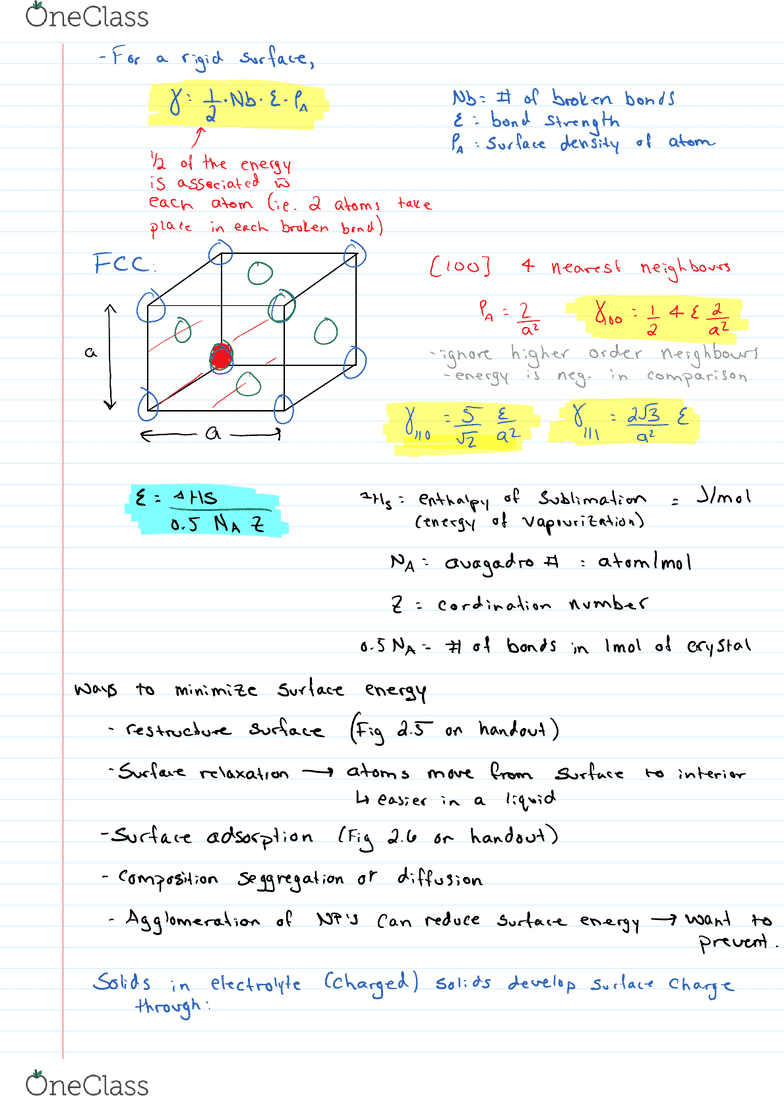 OneClass
- For a rigid surface,
γ = 1/2 · Nb · ε · ρA
Nb = # of broken bonds
ε = bond strength
ρA = surface density of atom
1/2 of the energy
is associated w̄
each atom (i.e. 2 atoms take
place in each broken bond)
FCC:
a
a
[100] 4 nearest neighbours
ρA = 2/a² γ100 = 1/2 4 ε 2/a²
- ignore higher order neighbours
- energy is neg. in comparison
γ110 = 5/√2 ε/a² γ111 = 2√3/a² ε
ε = ΔHs / 0.5 NA Z
ΔHs = enthalpy of sublimation = J/mol
(energy of vapourization)
NA = avagadro # = atom/mol
Z = cordination number
0.5 NA = # of bonds in 1mol of crystal
Ways to minimize surface energy
- restructure surface (Fig 2.5 on handout)
- Surface relaxation → atoms move from surface to interior
↳ easier in a liquid
- Surface adsorption (Fig 2.6 on handout)
- Composition seggregation or diffusion
- Agglomeration of NP's can reduce surface energy → want to
prevent.
Solids in electrolyte (charged) solids develop surface charge
through:
OneClass